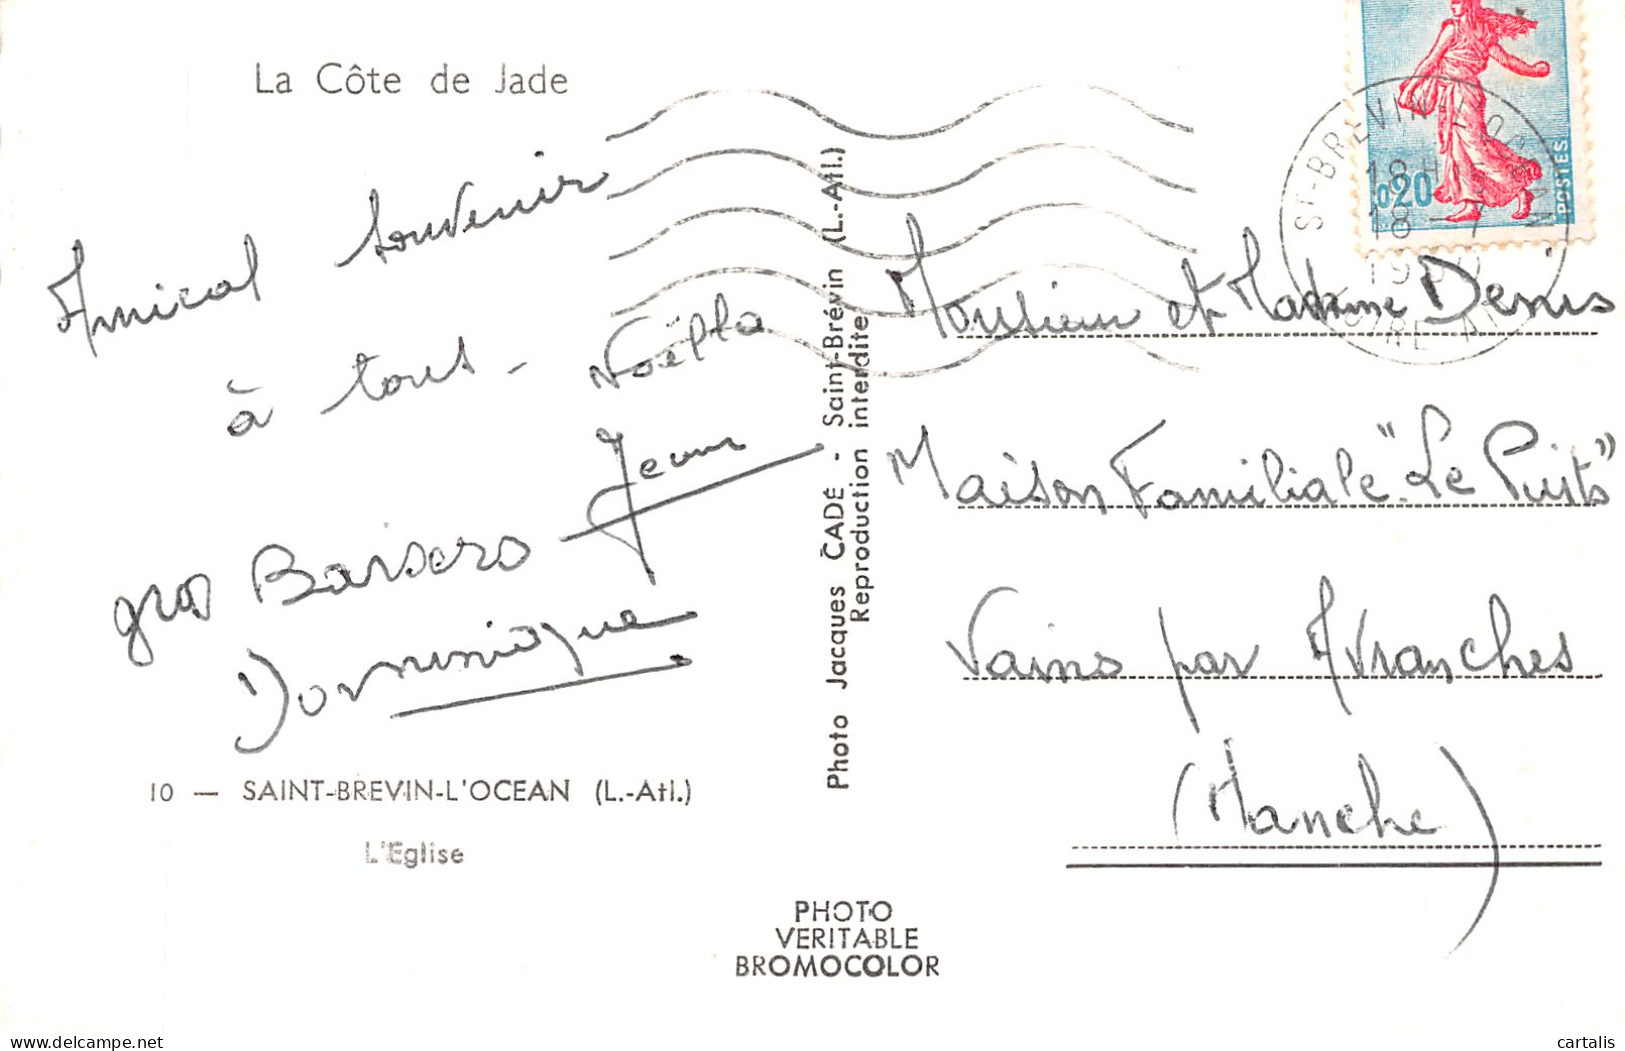 La Côte de Jade
Amical souvenir
à tous - Noëlla
Jean
gros Baisers
Dominique
10 — SAINT-BREVIN-L'OCEAN (L.-Atl.)
L'Eglise
Photo Jacques CADÉ - Saint-Brévin (L.-Atl.)
Reproduction interdite
PHOTO
VERITABLE
BROMOCOLOR
0,20
POSTES
ST-BREVIN-L'OCEAN
18 H
18 - 7
LOIRE-ATL.
Monsieur et Madame Denis
Maison Familiale "Le Puits"
Vains par Avranches
(Manche)
www.delcampe.net
cartalis